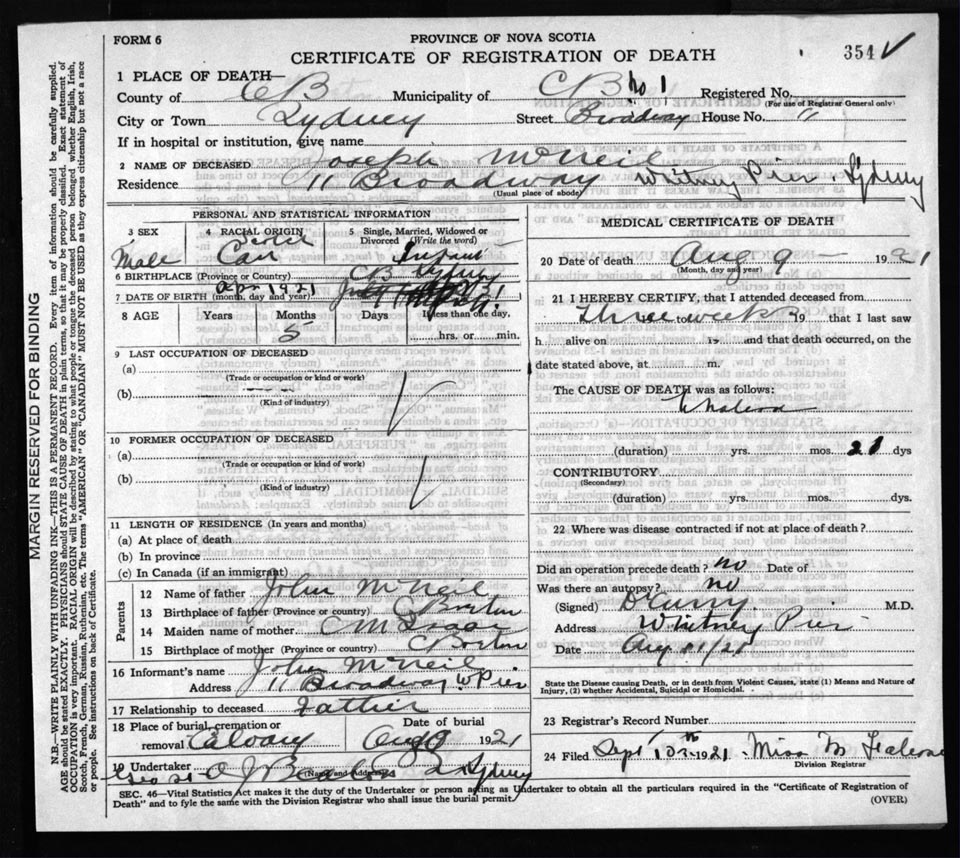 FORM 6
PROVINCE OF NOVA SCOTIA
CERTIFICATE OF REGISTRATION OF DEATH
354
1 PLACE OF DEATH—
County of CB Municipality of CB No 1 Registered No.
(For use of Registrar General only)
City or Town Sydney Street Broadway House No. 11
If in hospital or institution, give name
2 NAME OF DECEASED Joseph McNeil
Residence 11 Broadway Whitney Pier Sydney
(Usual place of abode)
PERSONAL AND STATISTICAL INFORMATION
3 SEX 4 RACIAL ORIGIN 5 Single, Married, Widowed or Divorced (Write the word)
Male Scotch Can Infant
6 BIRTHPLACE (Province or Country) CB Sydney
7 DATE OF BIRTH (month, day and year) Apr 1921
8 AGE Years Months Days If less than one day,
5 hrs. or min.
9 LAST OCCUPATION OF DECEASED
(a)
(Trade or occupation or kind or work)
(b)
(Kind of industry)
10 FORMER OCCUPATION OF DECEASED
(a)
(Trade or occupation or kind or work)
(b)
(Kind of industry)
11 LENGTH OF RESIDENCE (In years and months)
(a) At place of death
(b) In province
(c) In Canada (if an immigrant)
Parents
12 Name of father John McNeil
13 Birthplace of father (Province or country) C Breton
14 Maiden name of mother C McIsaac
15 Birthplace of mother (Province or country) C Breton
16 Informant's name John McNeil
Address 11 Broadway W Pier
17 Relationship to deceased Father
18 Place of burial, cremation or removal Calvary
Date of burial Aug 1921
19 Undertaker Sydney
(Name and Address)
MEDICAL CERTIFICATE OF DEATH
20 Date of death Aug 9 — 1921
(Month, day and year)
21 I HEREBY CERTIFY, that I attended deceased from
three weeks 19 that I last saw
h alive on 19 and that death occurred, on the
date stated above, at m.
The CAUSE OF DEATH was as follows:
Cholera
(duration) yrs. mos. 21 dys
CONTRIBUTORY
(Secondary)
(duration) yrs. mos. dys.
22 Where was disease contracted if not at place of death?
Did an operation precede death? no Date of
Was there an autopsy? no
(Signed) D Curry M.D.
Address Whitney Pier
Date Aug 11/21
State the Disease causing Death, or in death from Violent Causes, state (1) Means and Nature of
Injury, (2) whether Accidental, Suicidal or Homicidal.
23 Registrar's Record Number
24 Filed Sept 1921 Miss M
Division Registrar
SEC. 46—Vital Statistics Act makes it the duty of the Undertaker or person acting as Undertaker to obtain all the particulars required in the "Certificate of Registration of
Death" and to fyle the same with the Division Registrar who shall issue the burial permit
(OVER)
MARGIN RESERVED FOR BINDING
N.B.—WRITE PLAINLY WITH UNFADING INK—THIS IS A PERMANENT RECORD. Every item of information should be carefully supplied.
AGE should be stated EXACTLY. PHYSICIANS should STATE CAUSE OF DEATH in plain terms, so that it may be properly classified. Exact statement of
OCCUPATION is very important. RACIAL ORIGIN will be described by stating to what people or tongue the deceased person belonged whether English, Irish,
Scotch, French, German, Russian, Ruthenian, etc. The terms "AMERICAN" or "CANADIAN" MUST NOT BE USED as they express citizenship but not a race
or people. See instructions on back of Certificate.